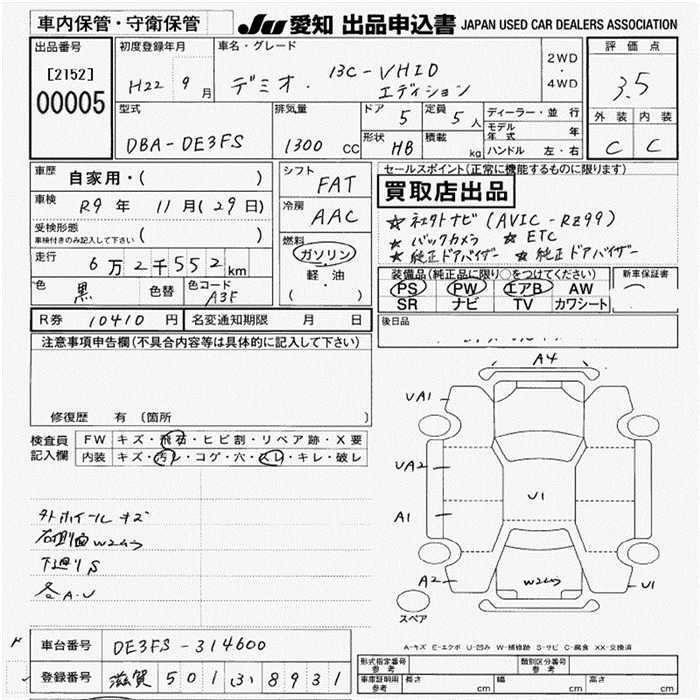 車内保管・守衛保管
JU 愛知 出品申込書 JAPAN USED CAR DEALERS ASSOCIATION
出品番号
[2152]
00005
初度登録年月
H22 9 月
車名・グレード
デミオ. 13C-VHID エディション
2WD
・
4WD
評価点
3.5
外装 内装
C C
型式
DBA-DE3FS
排気量
1300 CC
ドア 5
定員 5 人
形状 HB
積載 kg
ディーラー・並行
モデル年式 年
ハンドル 左・右
車歴 自家用・( )
車検 R9 年 11 月(29 日)
受検形態
車検付きのみ記入して下さい ( )
走行 6 万 2 千 5 5 2 km
色 黒
色替
色コード A3F
シフト FAT
冷房 AAC
燃料
ガソリン
軽・油
( )
セールスポイント(正常に機能するものに限ります)
買取店出品
☆ 社外ナビ (AVIC-RZ99)
☆ バックカメラ ☆ ETC
☆ 純正ドアバイザー ☆ 純正ドアバイザー
装備品(純正品に限り○をつけてください)
PS PW エアB AW
SR ナビ TV カワシート
新車保証書
後日品
R券 10410 円
名変通知期限 月 日
注意事項申告欄(不具合内容等は具体的に記入して下さい)
修復歴 有(箇所 )
検査員記入欄
FW キズ・飛石・ヒビ割・リペア跡・X要
内装 キズ・汚レ・コゲ・穴・スレ・キレ・破レ
外ホイールキズ
右側面W2ムラ
下廻りS
各A.U
A4
UA1
UA2
A1
A2
U1
W2ムラ
U1
スペア
A-キズ E-エクボ U-凹み W-補修跡 S-サビ C-腐食 XX-交換済
車台番号 DE3FS-314600
登録番号 滋賀 501 ふ 8931
形式指定番号 参考
類別区分番号 参考
車庫証明用 参考
長さ cm
幅 cm
高さ cm